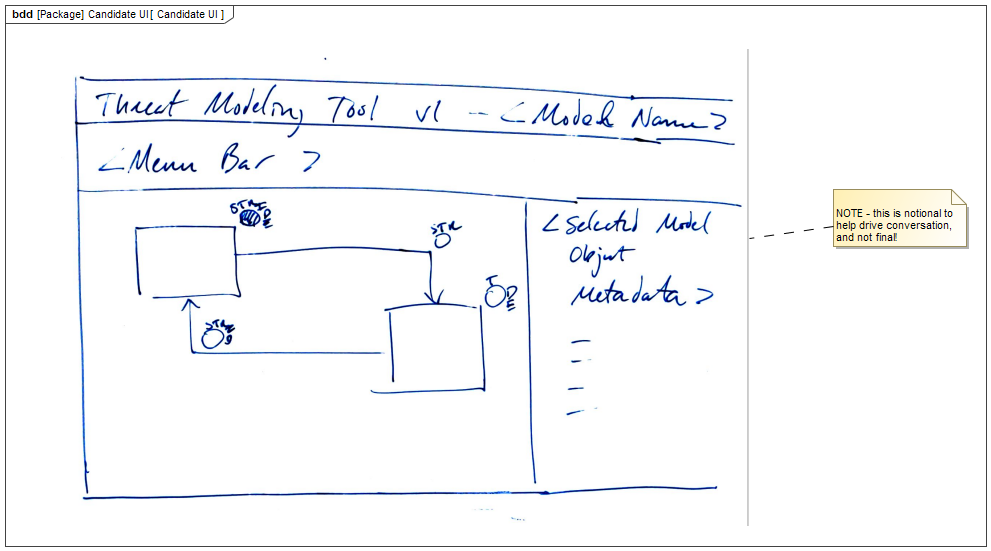 bdd [Package] Candidate UI[ Candidate UI ]
Threat Modeling Tool v1 -- <Model Name>
<Menu Bar >
<Selected Model
Object
Metadata >
STR
NOTE - this is notional to
help drive conversation,
and not final!